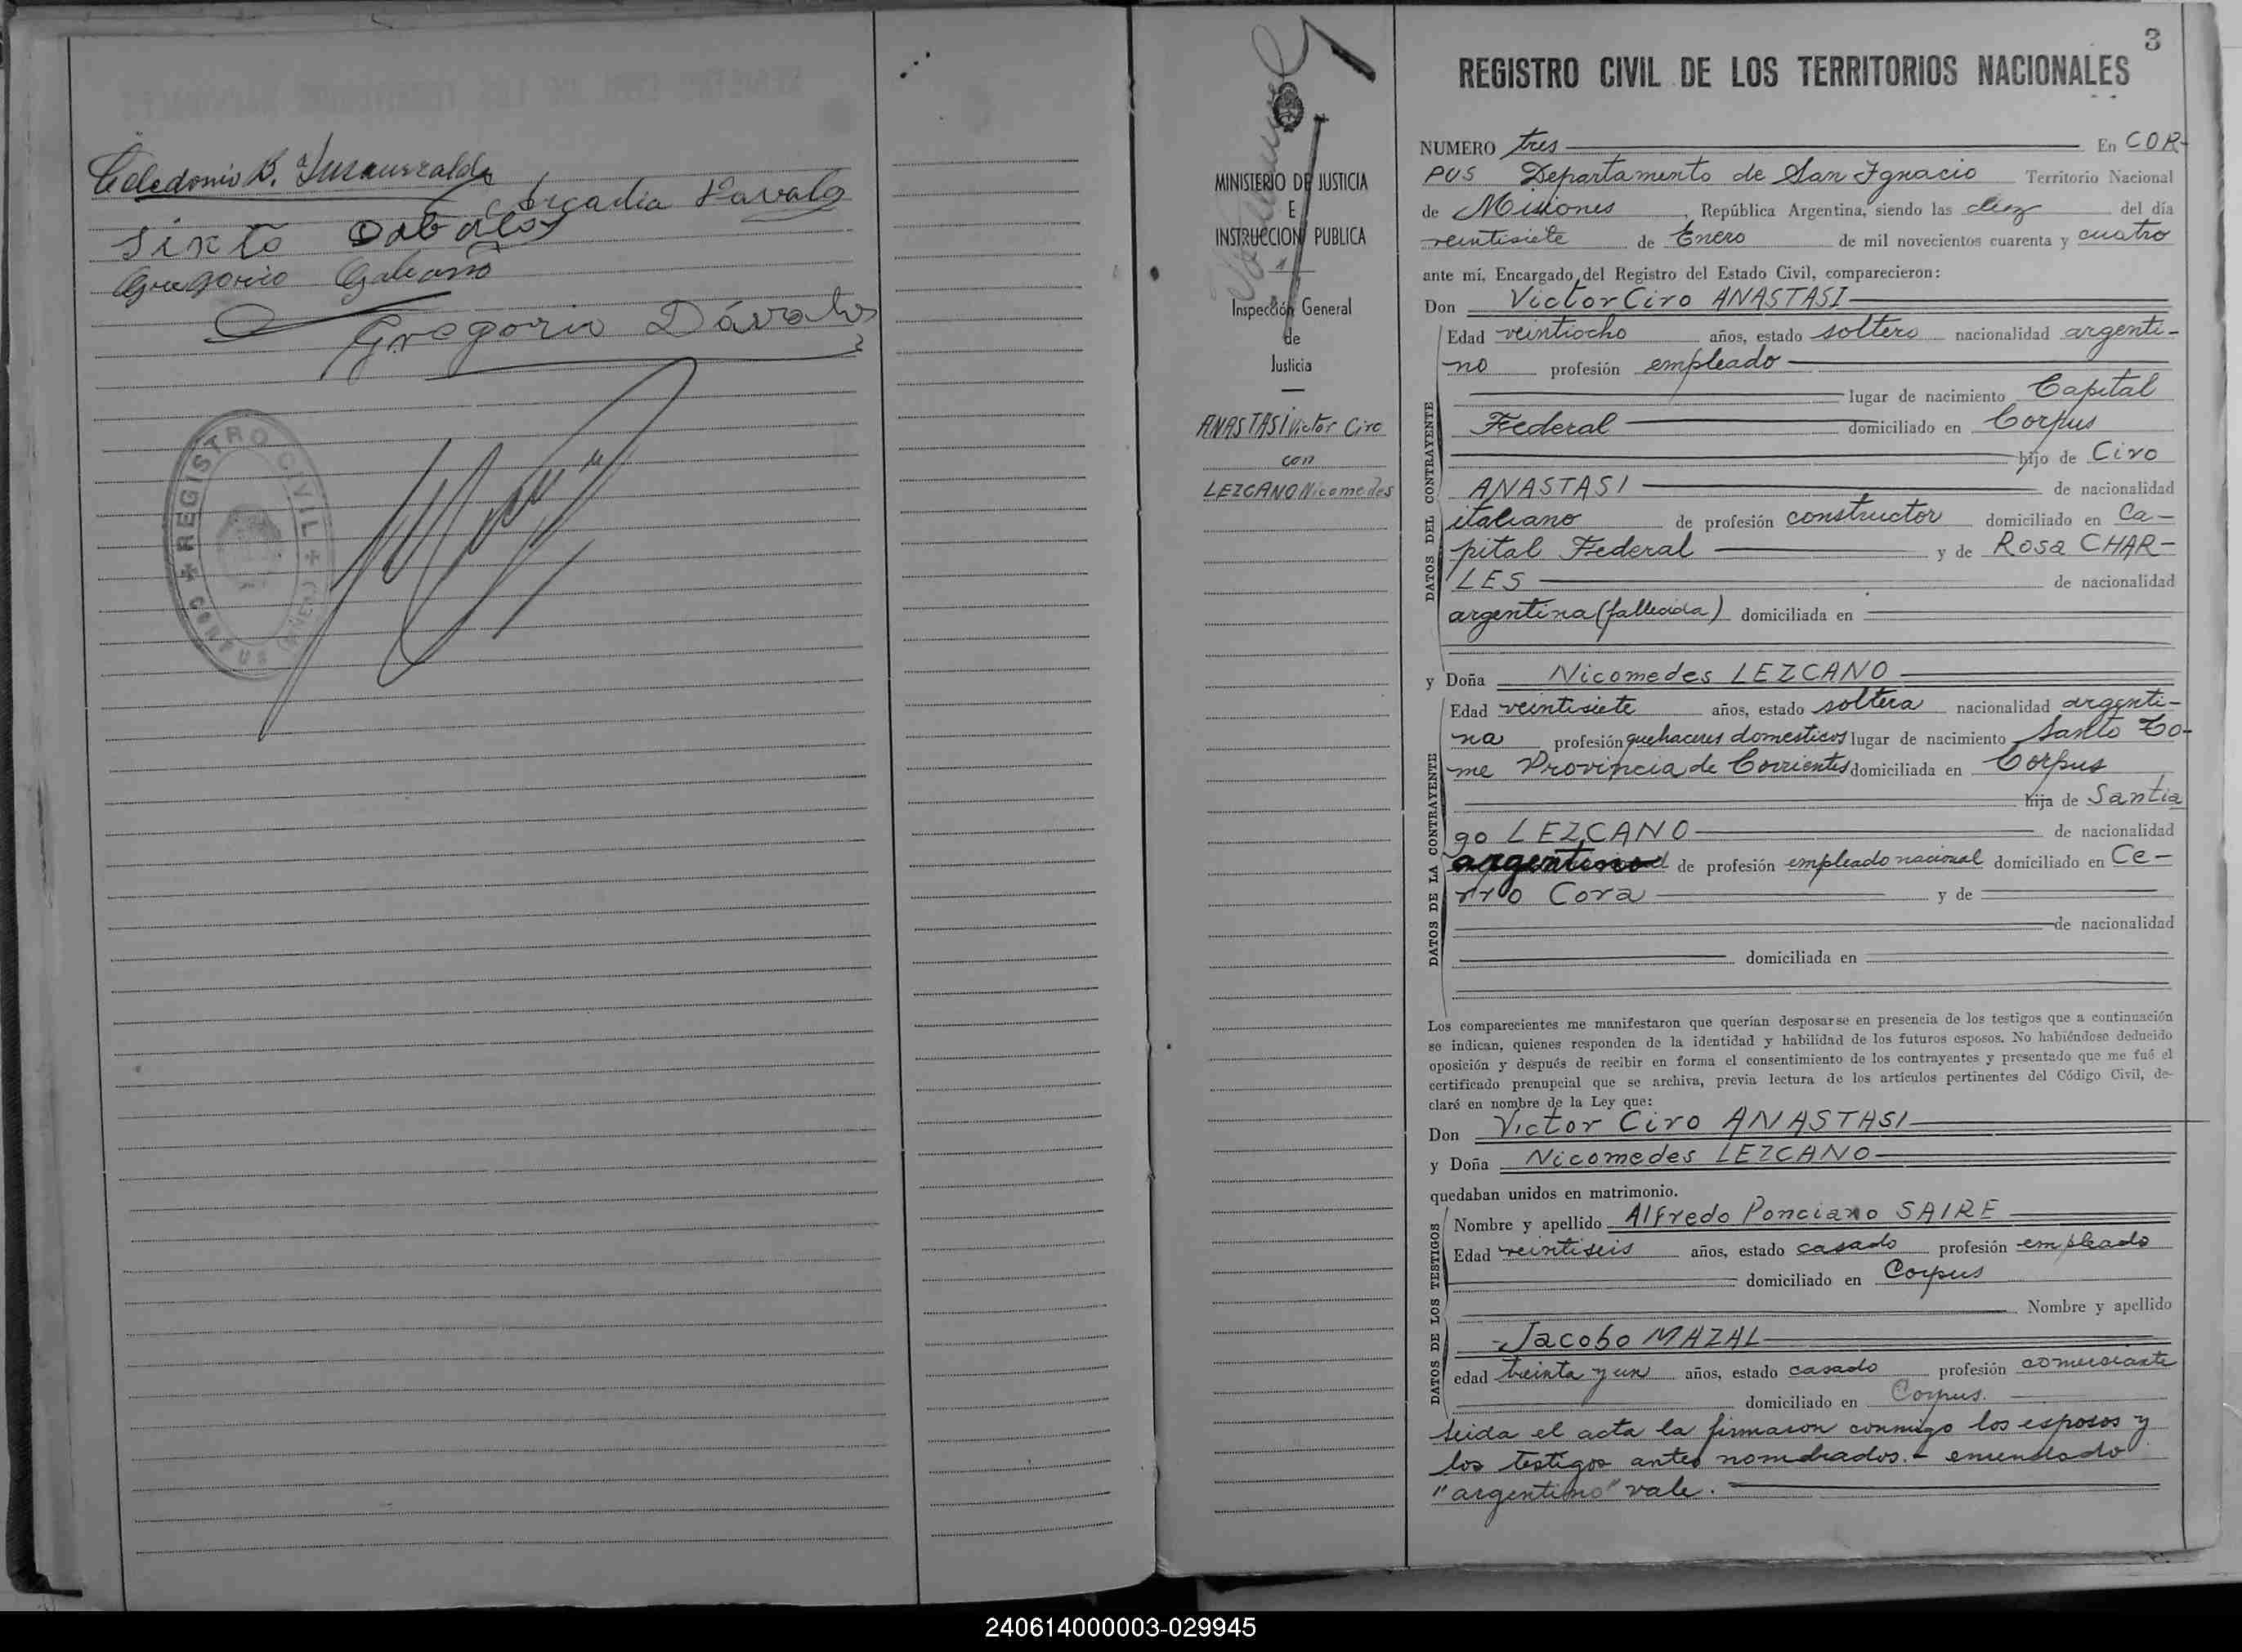 Celedonio B. Insaurralde
Arcadia Davalo
Sixto Dabalos
Gregorio Galeano
Gregorio Dávalos
REGISTRO CIVIL
CORPUS
3
REGISTRO CIVIL DE LOS TERRITORIOS NACIONALES
MINISTERIO DE JUSTICIA
E
INSTRUCCION PUBLICA
Inspección General
de
Justicia
ANASTASI Victor Ciro
con
LEZCANO Nicomedes
NUMERO tres En COR-
PUS Departamento de San Ignacio Territorio Nacional
de Misiones, República Argentina, siendo las diez del día
veintisiete de Enero de mil novecientos cuarenta y cuatro
ante mí, Encargado del Registro del Estado Civil, comparecieron:
Don Victor Ciro ANASTASI
Edad veintiocho años, estado soltero nacionalidad argenti-
no profesión empleado
lugar de nacimiento Capital
Federal domiciliado en Corpus
hijo de Ciro
ANASTASI de nacionalidad
italiano de profesión constructor domiciliado en Ca-
pital Federal y de Rosa CHAR-
LES de nacionalidad
argentina (fallecida) domiciliada en
DATOS DEL CONTRAYENTE
y Doña Nicomedes LEZCANO
Edad veintisiete años, estado soltera nacionalidad argenti-
na profesión quehaceres domesticos lugar de nacimiento Santo To-
me Provincia de Corrientes domiciliada en Corpus
hija de Santia
go LEZCANO de nacionalidad
argentino de profesión empleado nacional domiciliado en Ce-
rro Cora y de
de nacionalidad
domiciliada en
DATOS DE LA CONTRAYENTE
Los comparecientes me manifestaron que querían desposarse en presencia de los testigos que a continuación
se indican, quienes responden de la identidad y habilidad de los futuros esposos. No habiéndose deducido
oposición y después de recibir en forma el consentimiento de los contrayentes y presentado que me fué el
certificado prenupcial que se archiva, previa lectura de los artículos pertinentes del Código Civil, de-
claré en nombre de la Ley que:
Don Victor Ciro ANASTASI
y Doña Nicomedes LEZCANO
quedaban unidos en matrimonio.
Nombre y apellido Alfredo Ponciano SAIRE
Edad veintiseis años, estado casado profesión empleado
domiciliado en Corpus
Nombre y apellido
Jacobo MAZAL
edad treinta y un años, estado casado profesión comerciante
domiciliado en Corpus.
DATOS DE LOS TESTIGOS
Leida el acta la firmaron conmigo los esposos y
los testigos antes nombrados. - enmendado
"argentino" vale.
240614000003-029945